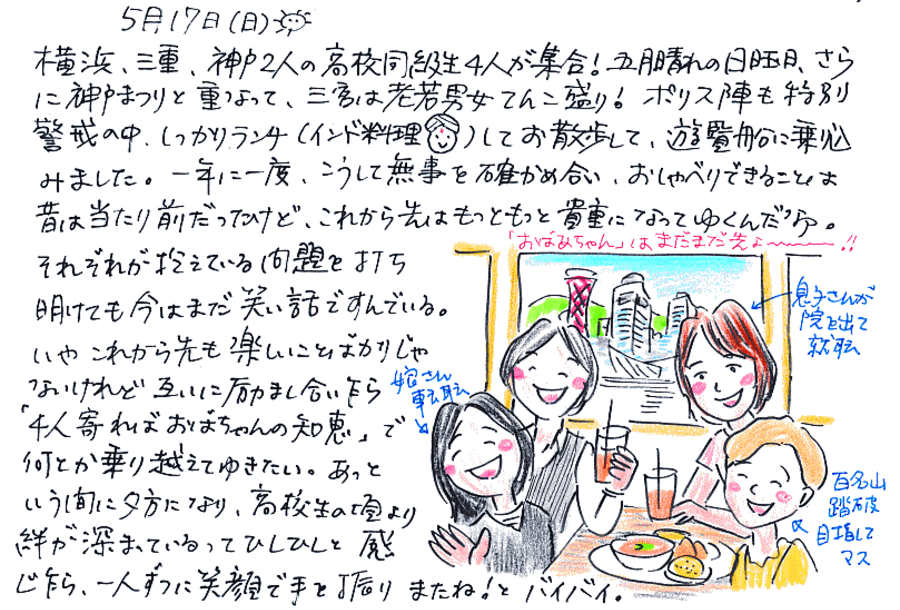 5月17日(日)
横浜、三重、神戸2人の高校同級生4人が集合!五月晴れの日曜日、さら
に神戸まつりと重なって、三宮は老若男女てんこ盛り!ポリス陣も特別
警戒の中、しっかりランチ(インド料理)してお散歩して、遊覧船に乗り込
みました。一年に一度、こうして無事を確かめ合い、おしゃべりできることは
昔は当たり前だったけど、これから先はもっともっと貴重になってゆくんだなあ。
「おばあちゃん」はまだまだ先よ〜!!
それぞれが抱えている問題を打ち
明けても今はまだ笑い話ですんでいる。
いやこれから先も楽しいことばかりじゃ
ないけれど互いに励まし合い乍ら
「4人寄ればおばちゃんの知恵」で
何とか乗り越えてゆきたい。あっと
いう間に夕方になり、高校生の頃より
絆が深まっているってひしひしと感
じ乍ら、一人ずつに笑顔で手を振りまたね!とバイバイ。
息子さんが
院を出て
就職
お嫁さん
転職
百名山
踏破
目指して
マス